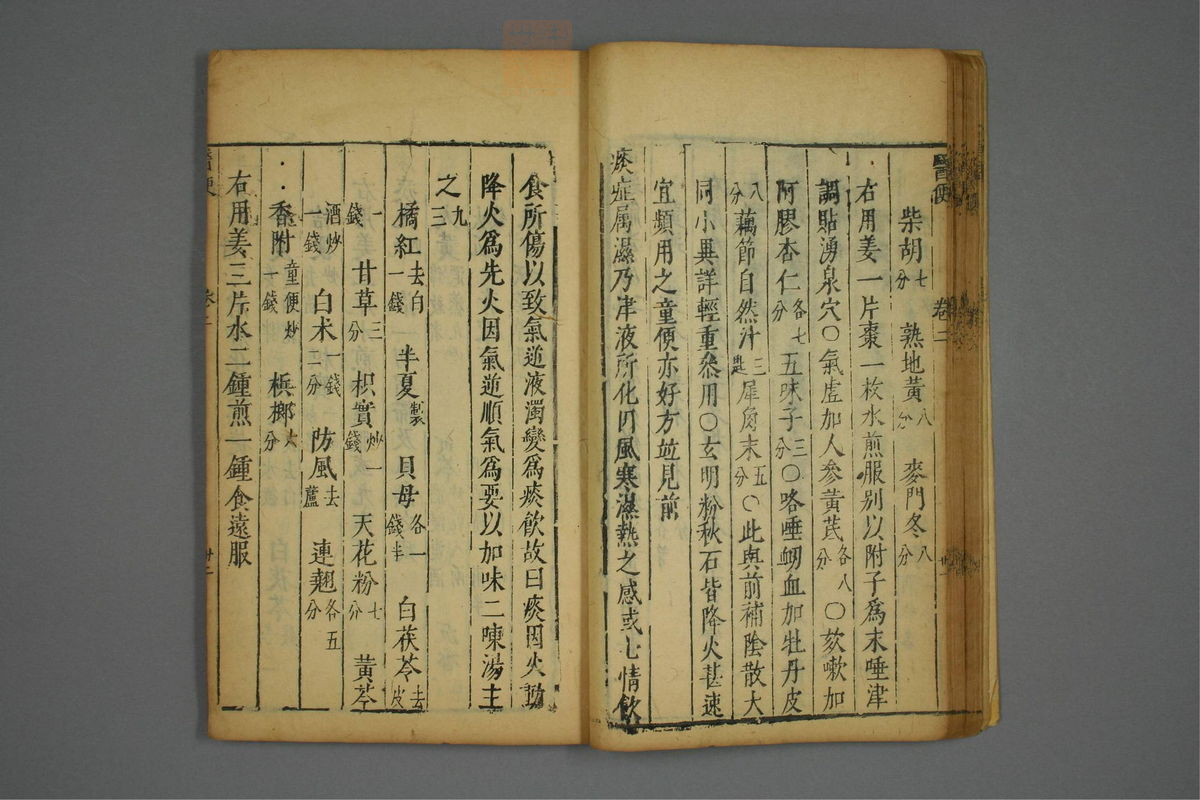 醫便
卷二
柴胡七分 熟地黃八分 麥門冬八分
右用姜一片棗一枚水煎服别以附子爲末唾津
調貼湧泉穴○氣虛加人參黃芪各八分○欬嗽加
阿膠杏仁各七分五味子三分○咯唾衂血加牡丹皮
八分藕節自然汁三匙犀角末五分○此與前補陰散大
同小異詳輕重叅用○玄明粉秋石皆降火甚速
宜頻用之童便亦好方並見前
痰症属濕乃津液所化因風寒濕熱之感或七情飲
食所傷以致氣逆液濁變爲痰飲故曰痰因火動
降火爲先火因氣逆順氣爲要以加味二陳湯主
之九三
橘紅去白一錢 半夏製 貝母各一錢半 白茯苓去皮
一錢 甘草三分 枳實炒一錢 天花粉七分 黃芩
酒炒一錢 白术一錢二分 防風去蘆 連翹各五分
香附童便炒一錢 檳榔六分
右用姜三片水二鍾煎一鍾食遠服
醫便
卷二
廿二